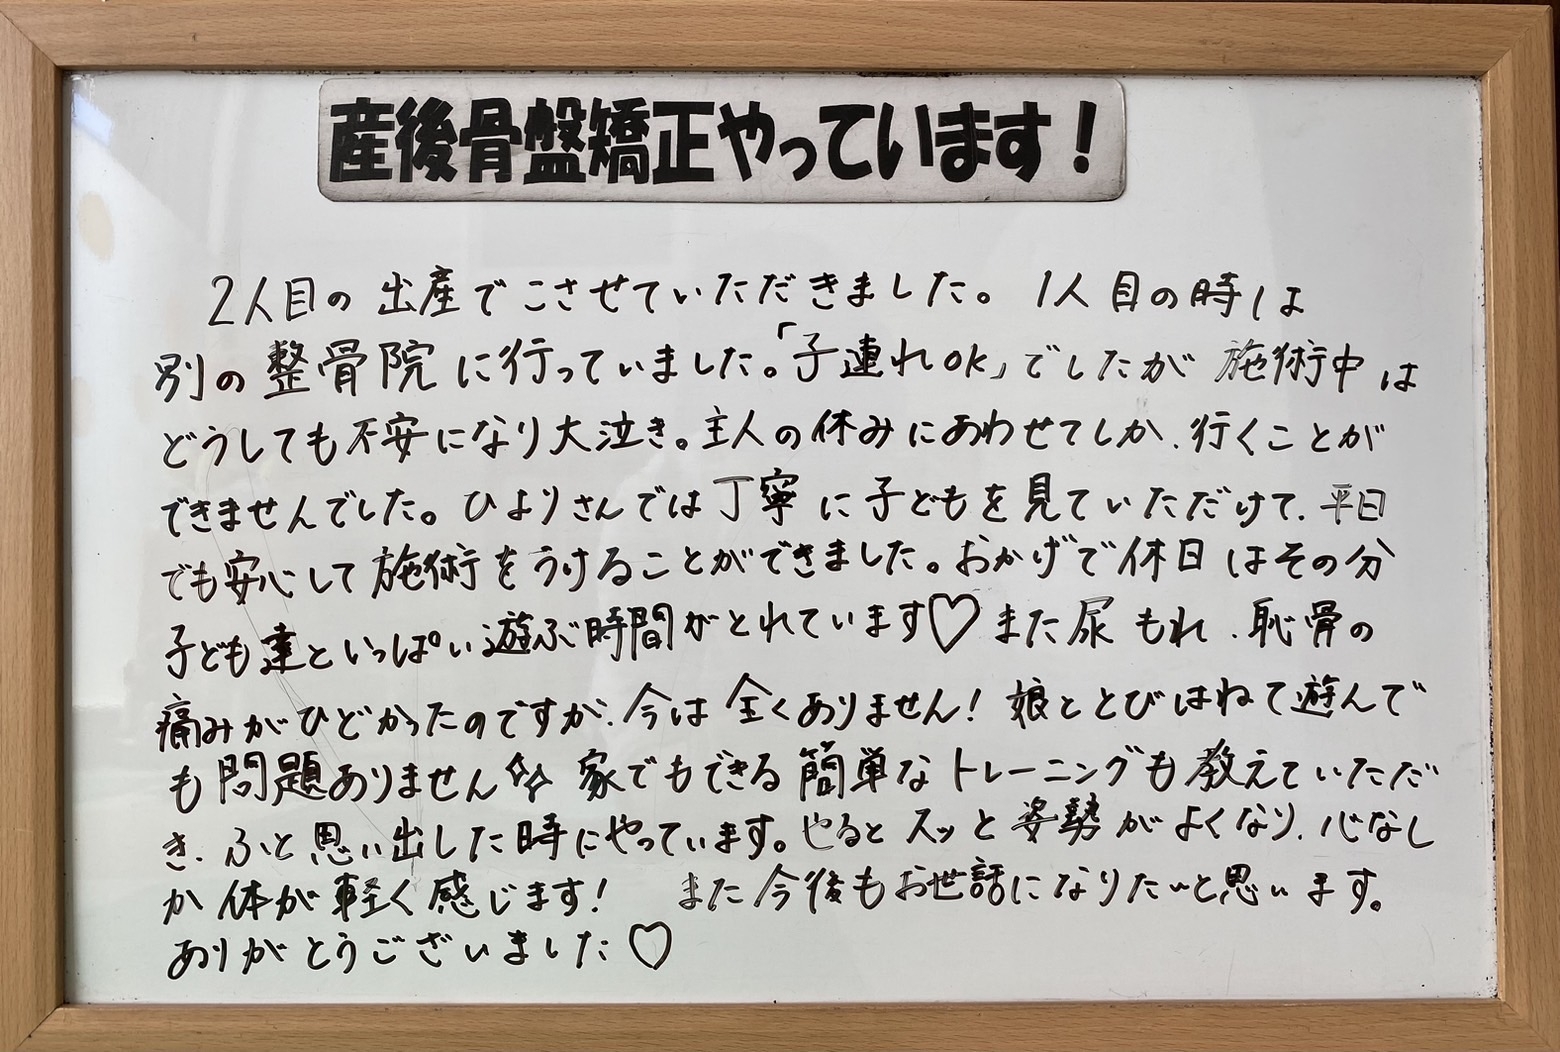 産後骨盤矯正やっています！
2人目の出産でこさせていただきました。1人目の時は
別の整骨院に行っていました。「子連れOK」でしたが施術中は
どうしても不安になり大泣き。主人の休みにあわせてしか、行くことが
できませんでした。ひよりさんでは丁寧に子どもを見ていただけて、平日
でも安心して施術をうけることができました。おかげで休日はその分
子ども達といっぱい遊ぶ時間がとれています♡また尿もれ、恥骨の
痛みがひどかったのですが、今は全くありません！娘ととびはねて遊んで
も問題ありません☆☆ 家でもできる簡単なトレーニングも教えていただ
き、ふと思い出した時にやっています。やるとスッと姿勢がよくなり、心なし
か体が軽く感じます！ また今後もお世話になりたいと思います。
ありがとうございました♡